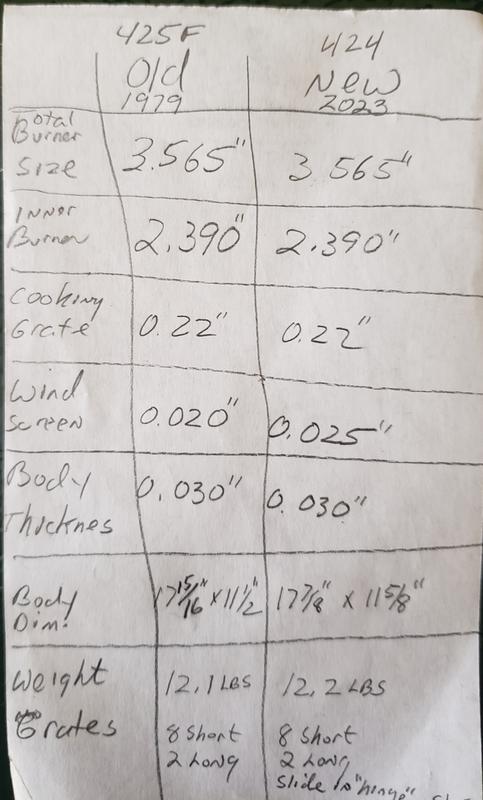 425F 424
Old New
1979 2023
Total
Burner
Size 3.565" 3.565"
Inner
Burner 2.390" 2.390"
Cooking
Grate 0.22" 0.22"
Wind
Screen 0.020" 0.025"
Body
Thicknes 0.030" 0.030"
Body
Dim. 17 15/16" x 11 1/2" 17 7/8" x 11 5/8"
Weight 12.1 LBS 12.2 LBS
Grates 8 Short 8 Short
2 Long 2 Long
Slide in "hinge"